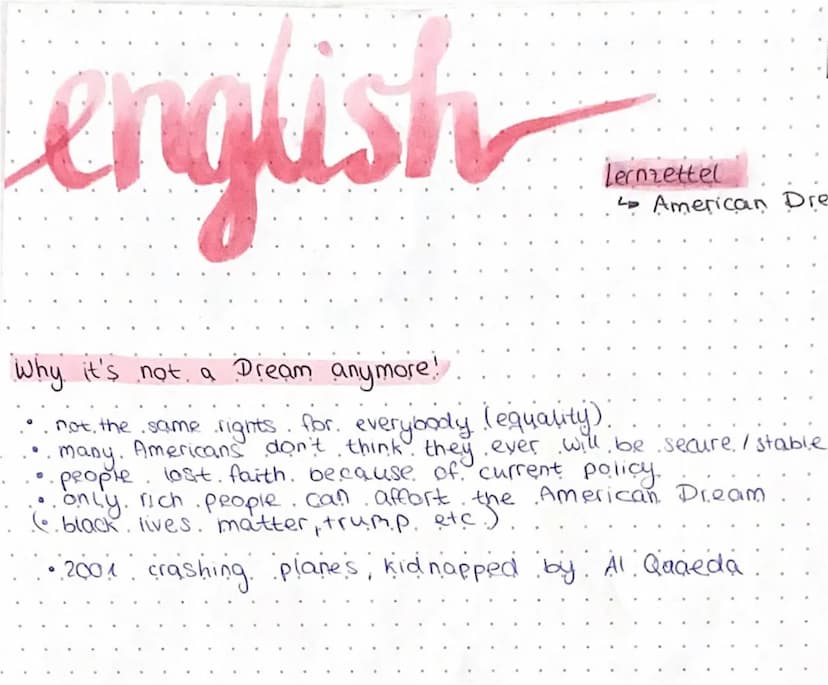 english
Lernzettel
↳ American Dre
Why it's not a Dream anymore!
• not the same rights for everybody (equality)
• many Americans don't think they ever will be secure/stable
• people lost faith because of current policy
• only rich people can affort the American Dream
(• black lives matter, trump etc.)
• 2001 crashing planes, kidnapped by Al Qaaeda